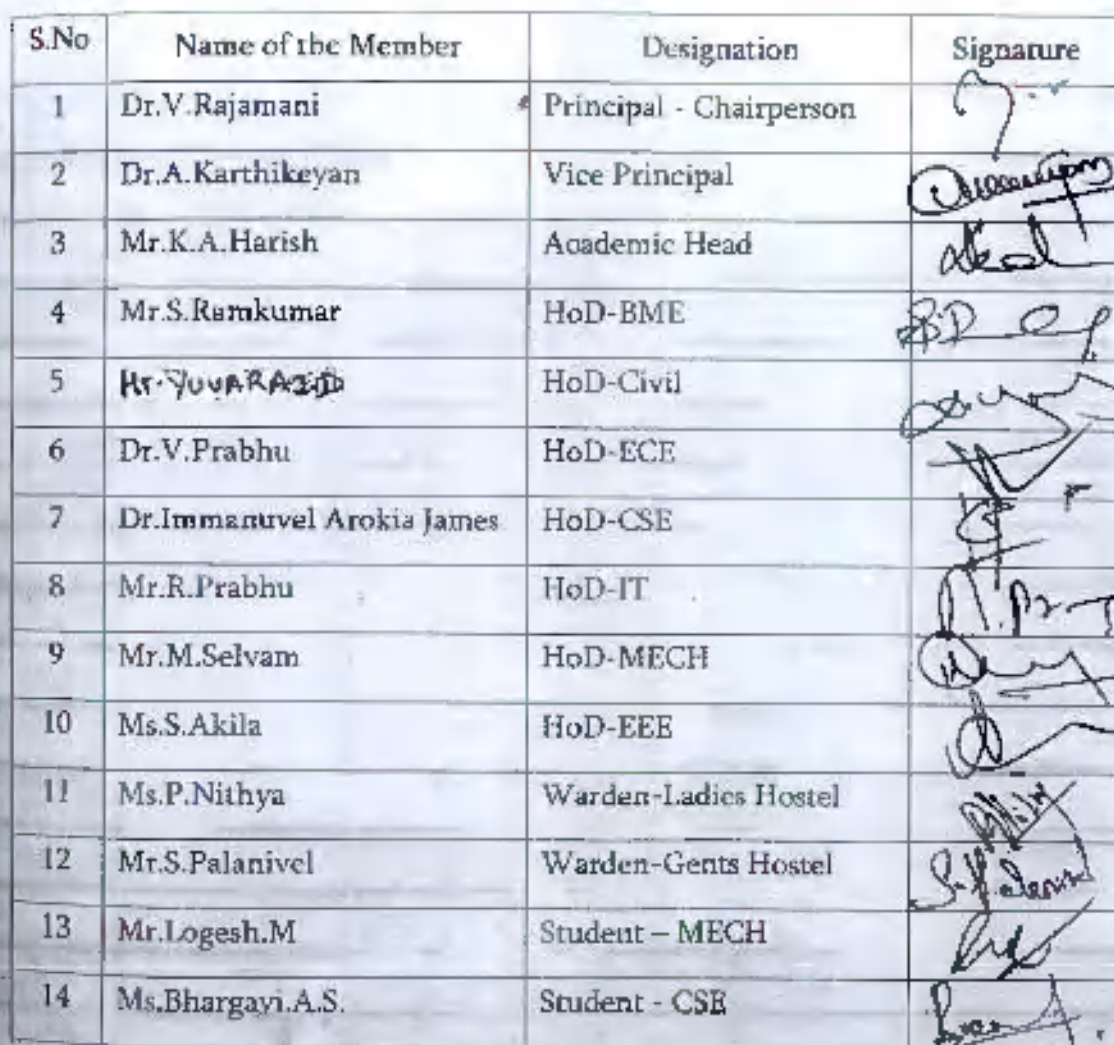 S.No Name of the Member Designation Signature
1 Dr.V.Rajamani Principal - Chairperson
2 Dr.A.Karthikeyan Vice Principal
3 Mr.K.A.Harish Academic Head
4 Mr.S.Ramkumar HoD-BME
5 Mr. HoD-Civil
6 Dr.V.Prabhu HoD-ECE
7 Dr.Immanuvel Arokia James HoD-CSE
8 Mr.R.Prabhu HoD-IT
9 Mr.M.Selvam HoD-MECH
10 Ms.S.Akila HoD-EEE
11 Ms.P.Nithya Warden-Ladies Hostel
12 Mr.S.Palanivel Warden-Gents Hostel
13 Mr.Logesh.M Student – MECH
14 Ms.Bhargayi.A.S. Student - CSE